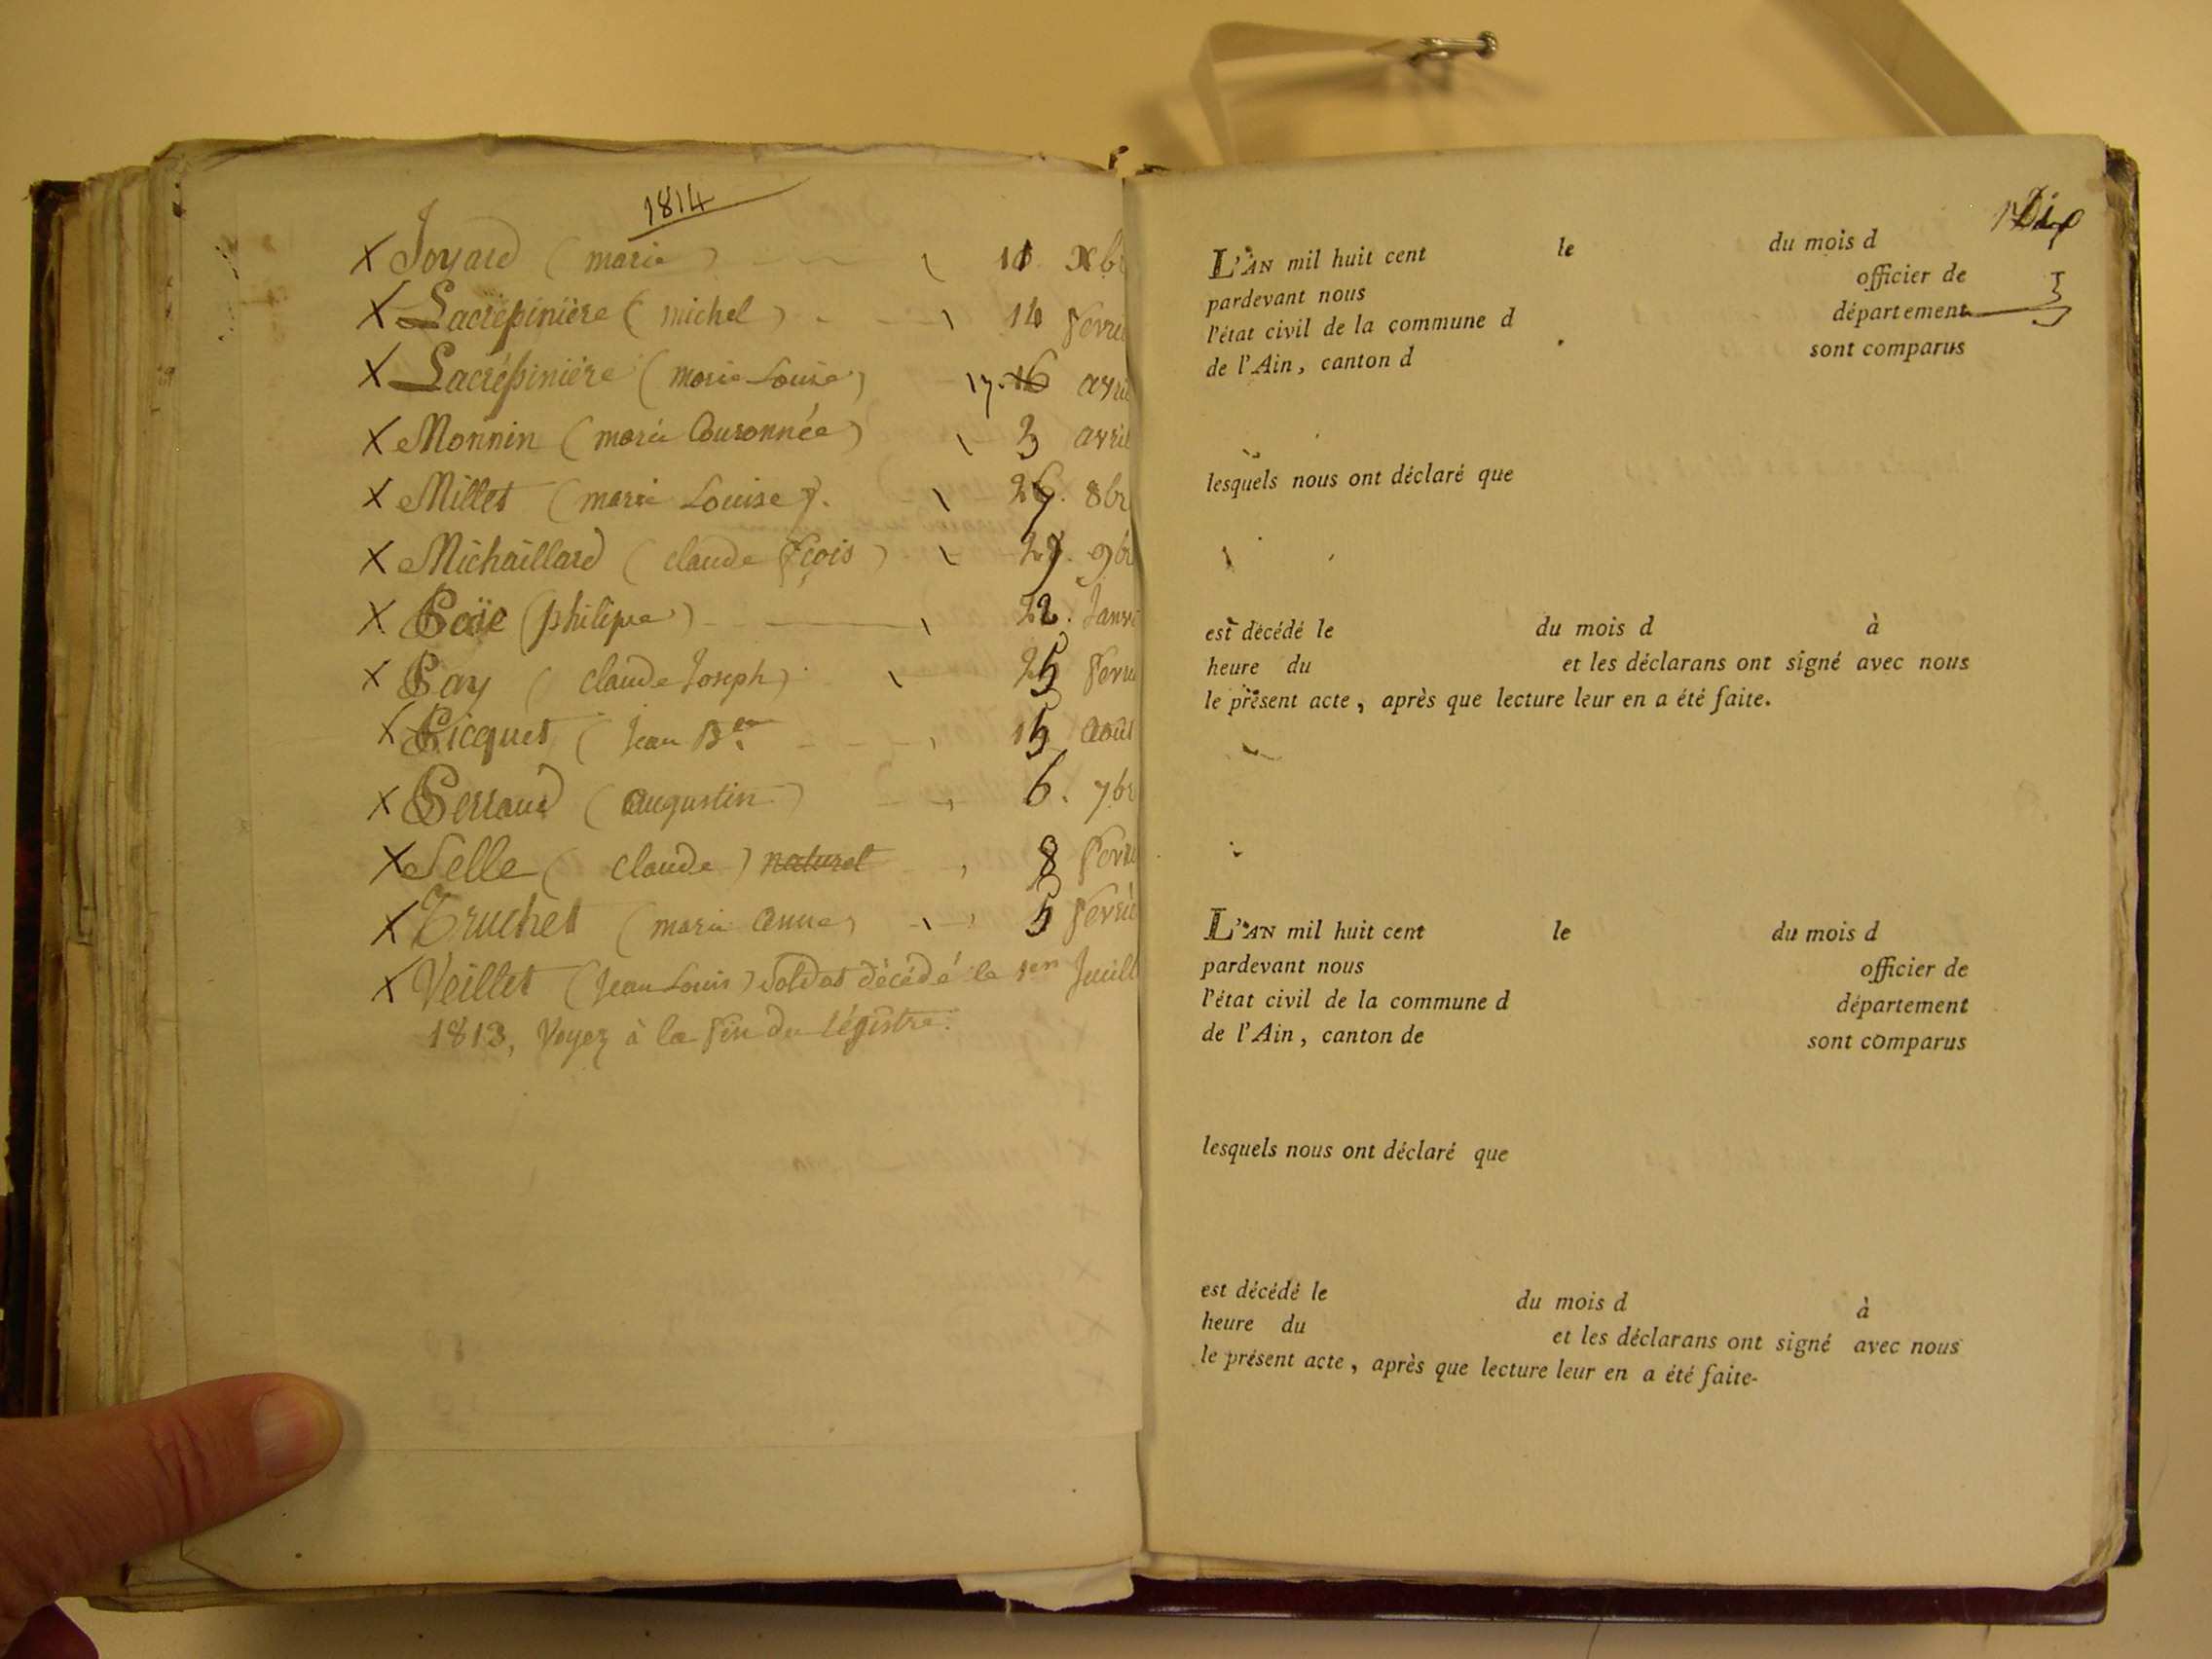 1814
X Joyard (marie) 11 Xbr
X Lacrépinière (michel) 14 Fevrie
X Lacrépinière (marie Louise) 17. 16 avril
X Monnin (marie Couronnée) 3 avril
X Millet (marie Louise) 8br
X Michaillard (claude fçois) 9br
X (philipe) 22. Janvi
X Pay (claude Joseph) 25 Fevri
X Picquet (Jean Bte) 15 août
X Perraud (augustin) 6. 7br
X Selle (claude) naturel 8 Fevri
X Truchet (marie anne) 5 Fevrie
X Veillet (Jean Louis) soldat décédé le 1er Juill
1813, Voyez à la fin du régistre.
L'AN mil huit cent le du mois d
pardevant nous officier de
l'état civil de la commune d département
de l'Ain, canton d sont comparus
lesquels nous ont déclaré que
est décédé le du mois d à
heure du et les déclarans ont signé avec nous
le présent acte, après que lecture leur en a été faite.
L'AN mil huit cent le du mois d
pardevant nous officier de
l'état civil de la commune d département
de l'Ain, canton de sont comparus
lesquels nous ont déclaré que
est décédé le du mois d à
heure du et les déclarans ont signé avec nous
le présent acte, après que lecture leur en a été faite-